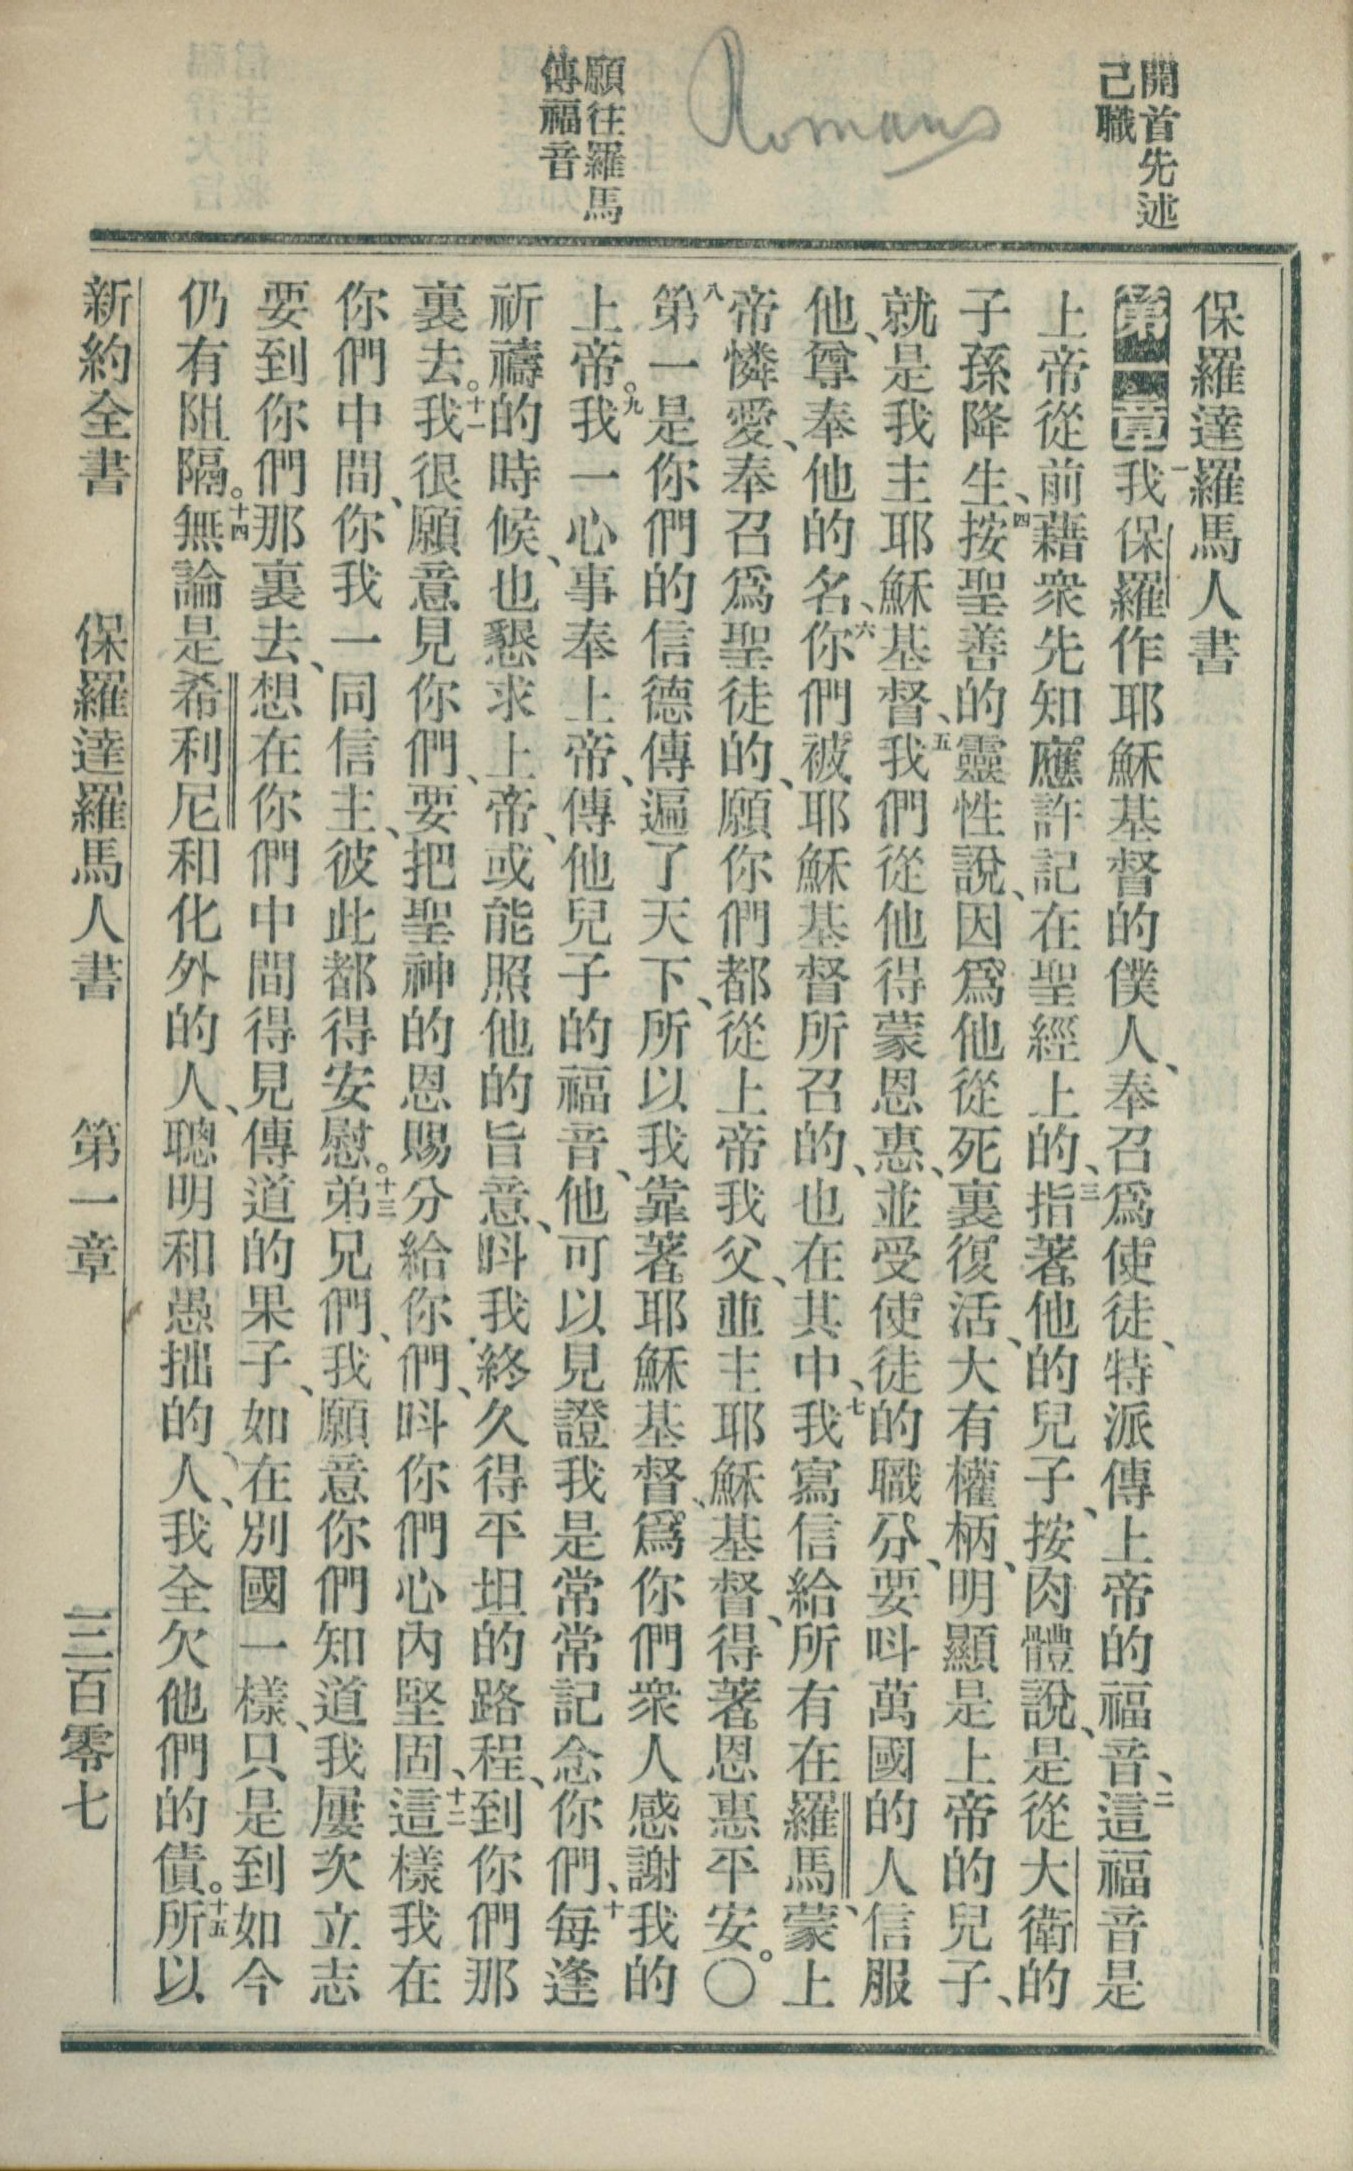 開首先述
己職
Romans
願往羅馬
傳福音
保羅達羅馬人書
第一章 一我保羅作耶穌基督的僕人、奉召爲使徒、特派傳上帝的福音、二這福音是
上帝從前藉衆先知應許記在聖經上的、三指著他的兒子、按肉體說、是從大衛的
子孫降生、四按聖善的靈性說、因爲他從死裏復活、大有權柄、明顯是上帝的兒子、
就是我主耶穌基督、五我們從他得蒙恩惠、並受使徒的職分、要呌萬國的人信服
他、尊奉他的名、六你們被耶穌基督所召的、也在其中、七我寫信給所有在羅馬、蒙上
帝憐愛、奉召爲聖徒的、願你們都從上帝我父、並主耶穌基督、得著恩惠平安。〇
八第一是你們的信德傳遍了天下、所以我靠著耶穌基督、爲你們衆人感謝我的
上帝。九我一心事奉上帝、傳他兒子的福音、他可以見證我是常常記念你們、十每逢
祈禱的時候、也懇求上帝、或能照他的旨意、呌我終久得平坦的路程、到你們那
裏去。十一我很願意見你們、要把聖神的恩賜分給你們、呌你們心內堅固、十二這樣我在
你們中間、你我一同信主、彼此都得安慰。十三弟兄們、我願意你們知道我屢次立志
要到你們那裏去、想在你們中間得見傳道的果子、如在別國一樣、只是到如今
仍有阻隔。十四無論是希利尼和化外的人、聰明和愚拙的人、我全欠他們的債。十五所以
新約全書 保羅達羅馬人書 第一章 三百零七